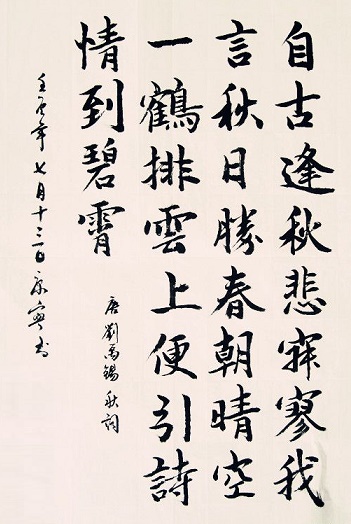 自古逢秋悲寂寥我
言秋日勝春朝晴空
一鶴排雲上便引詩
情到碧霄
唐劉禹錫秋詞
壬寅年七月十三日